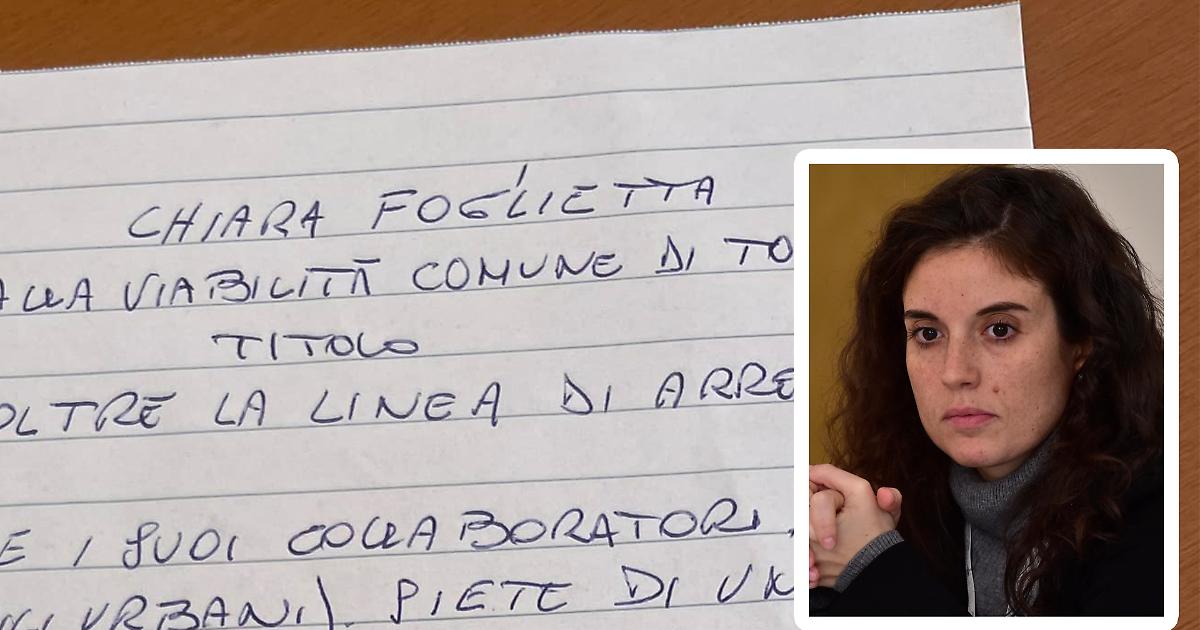 CHIARA FOGLIETTA
ALLA VIABILITÀ COMUNE DI TO
TITOLO
OLTRE LA LINEA DI ARRE
E I SUOI COLLABORATORI,
URBANI). SIETE DI UN